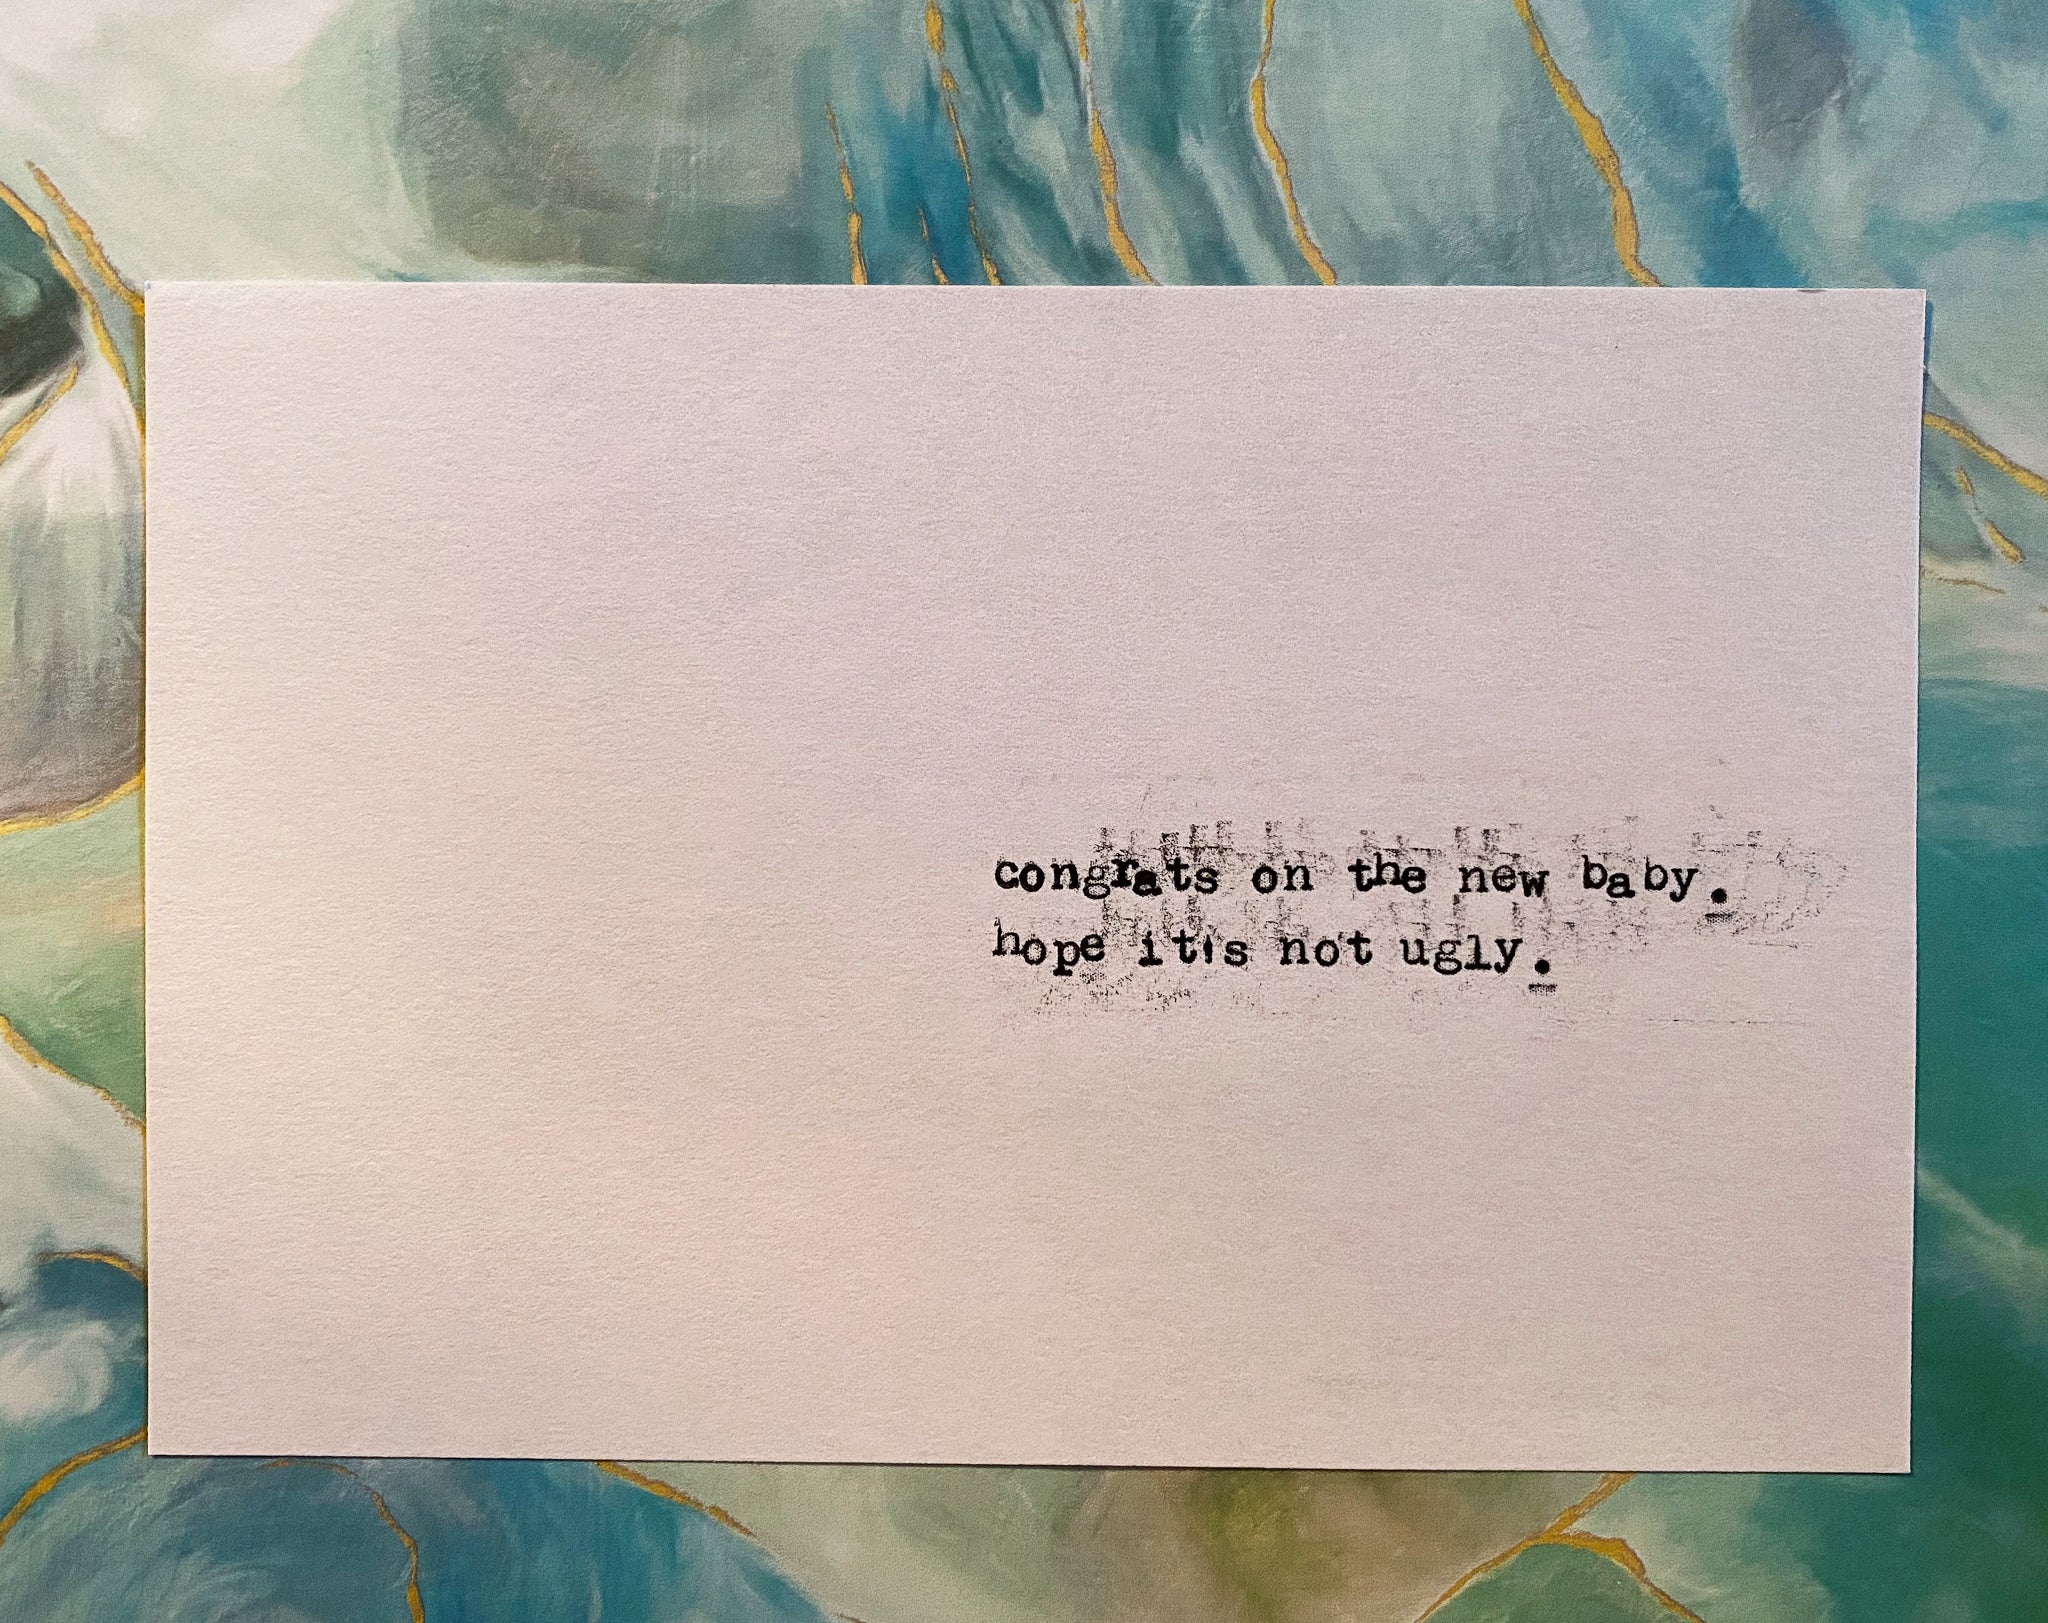 congrats on the new baby.
hope it's not ugly.